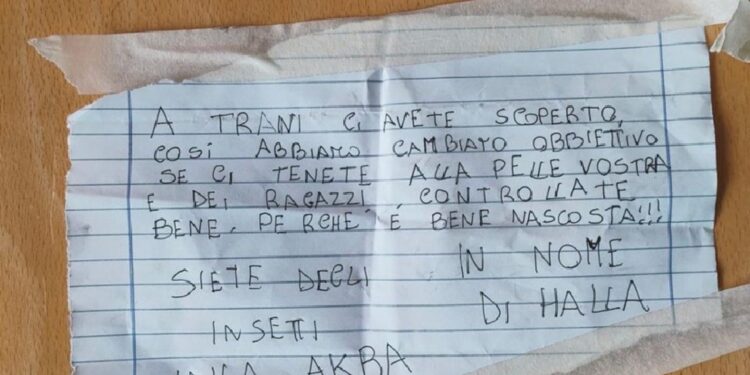 A TRANI CI AVETE SCOPERTO,
COSÌ ABBIAMO CAMBIATO OBBIETTIVO
SE CI TENETE ALLA PELLE VOSTRA
E DEI RAGAZZI, CONTROLLATE
BENE. PERCHÈ È BENE NASCOSTA!!!
SIETE DEGLI
INSETTI
IN NOME
DI HALLA
AKBA